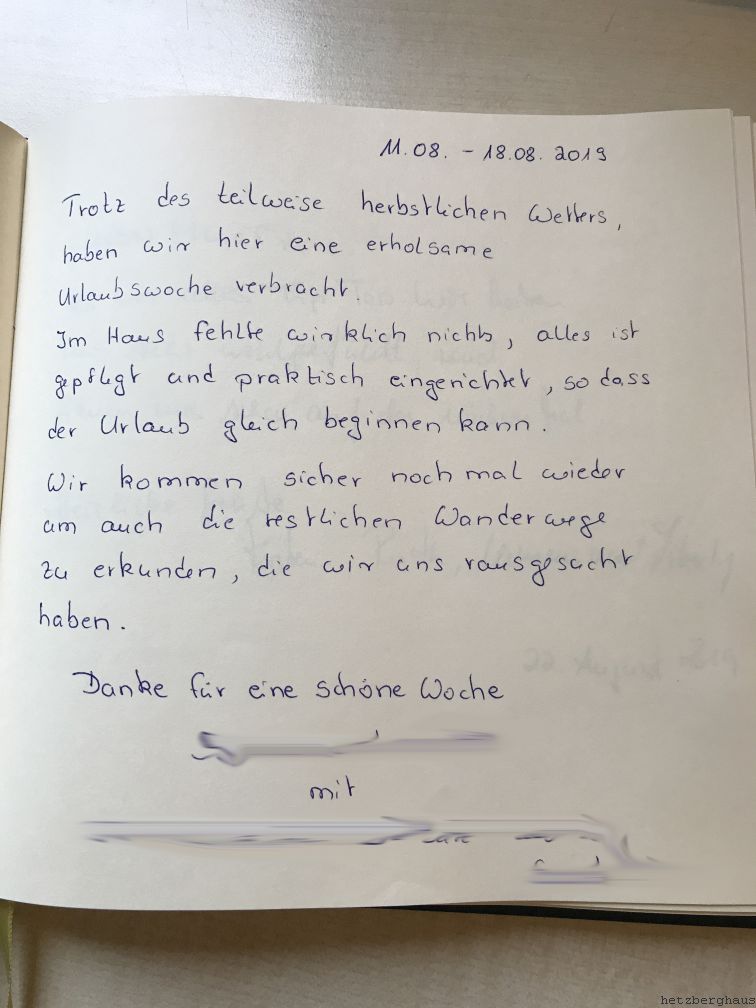 11.08. - 18.08. 2019
Trotz des teilweise herbstlichen Wetters,
haben wir hier eine erholsame
Urlaubswoche verbracht.
Im Haus fehlte wirklich nichts, alles ist
gepflegt und praktisch eingerichtet, so dass
der Urlaub gleich beginnen kann.
Wir kommen sicher noch mal wieder
um auch die restlichen Wanderwege
zu erkunden, die wir uns rausgesucht
haben.
Danke für eine schöne Woche
mit
hetzberghaus